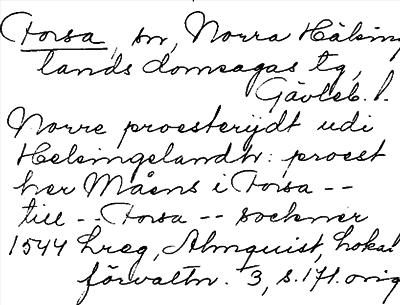 Forsa, sn, Norra Hälsing
lands domsagas tg,
Gävleb. l.
Norre proesterijdt udi
Helsingelandh: proest
her Måens i Forsa --
till -- Forsa -- sockner
1544 hreg, Almquist, Lokal
förvaltn. 3, s. 171. orig